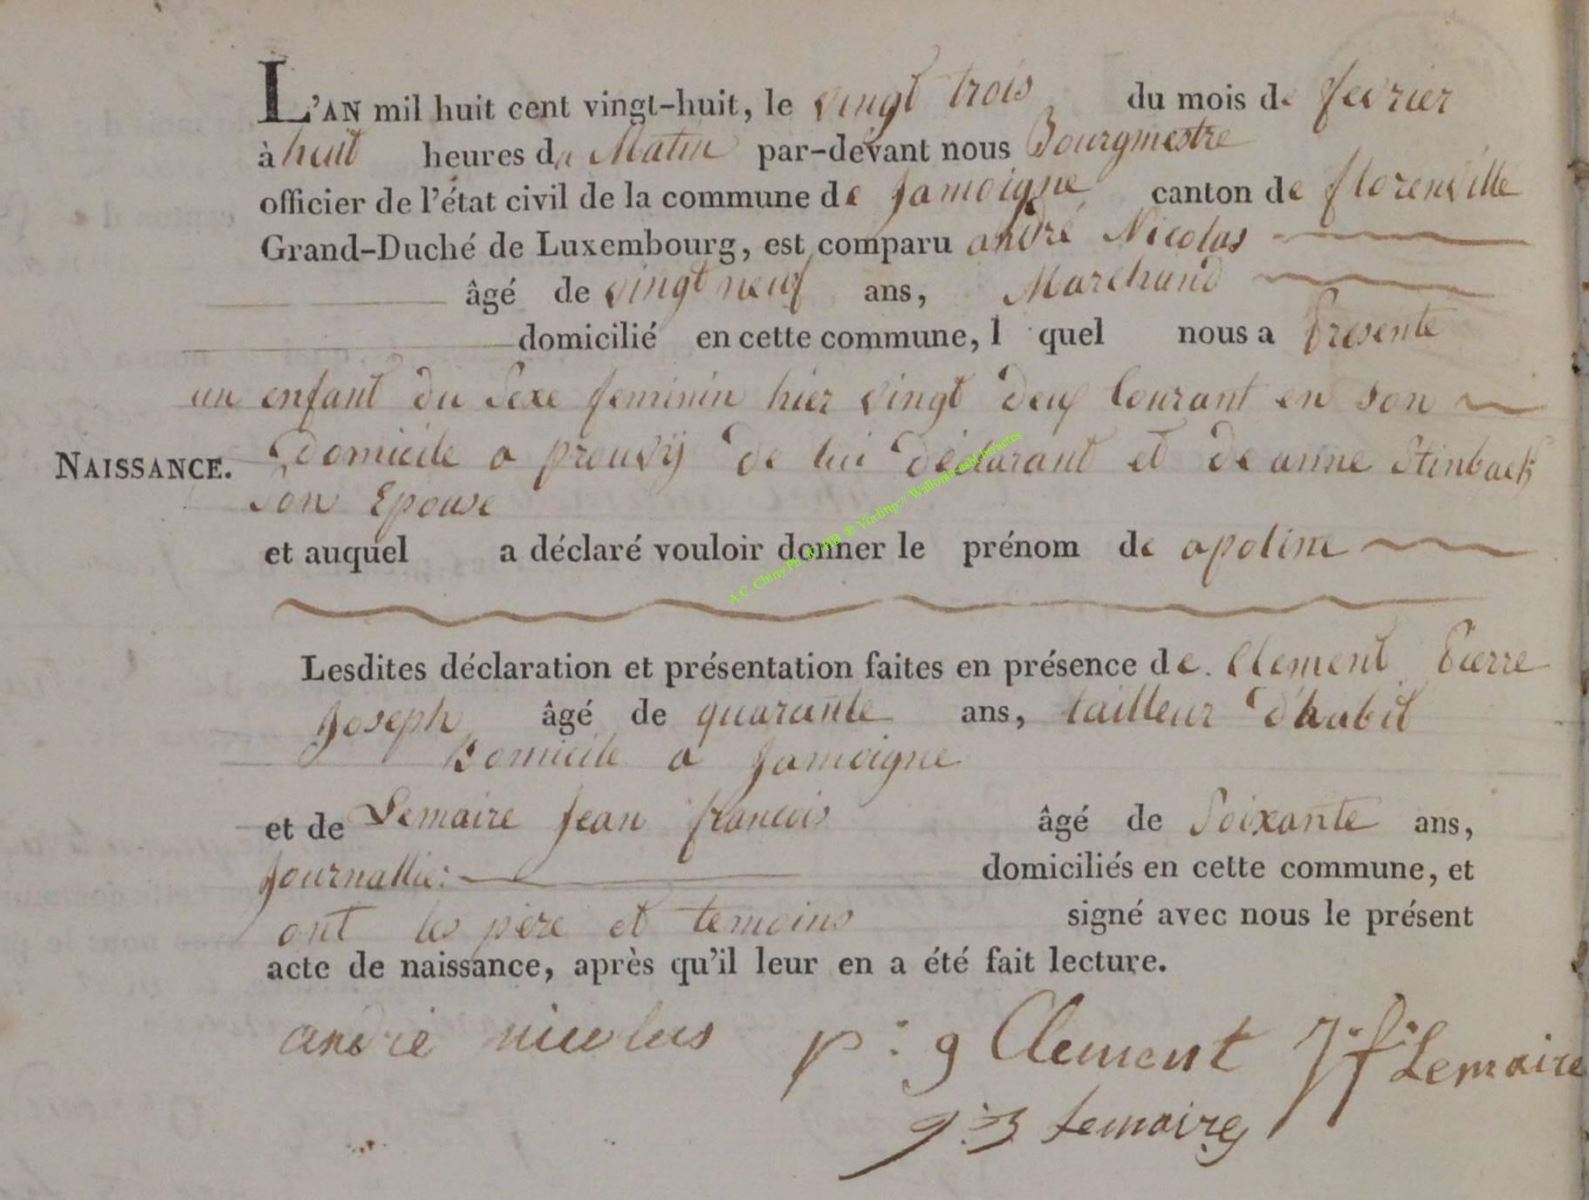 L'AN mil huit cent vingt-huit, le vingt trois du mois de fevrier
à huit heures du Matin par-devant nous Bourgmestre
officier de l'état civil de la commune de Jamoigne canton de florenville
Grand-Duché de Luxembourg, est comparu andré Nicolas
âgé de vingt neuf ans, Marchand
domicilié en cette commune, l quel nous a Presenté
un enfant du Sexe feminin hier vingt deux Courant en son
NAISSANCE. Domicile a prouvÿ de lui déclarant et de anne Stinback
Son Epouse
et auquel a déclaré vouloir donner le prénom de apoline
Lesdites déclaration et présentation faites en présence de Clement Pierre
Joseph âgé de quarante ans, tailleur d'habit
Domicile a Jamoigne
et de Lemaire Jean francois âgé de Soixante ans,
Journallie: domiciliés en cette commune, et
ont les père et temoins signé avec nous le présent
acte de naissance, après qu'il leur en a été fait lecture.
andré nicolas p: g Clement J: f: Lemaire
Lemaire